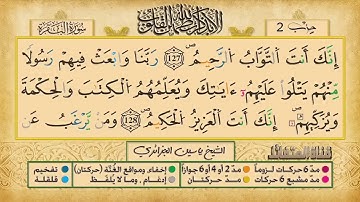 سُورَةُ البَقَرَة
أَلَا بِذِكْرِ اللَّهِ تَطْمَئِنُّ القُلُوبُ
حزب 2
إِنَّكَ أَنتَ اَلتَّوَّابُ اُلرَّحِيمُ 127 رَبَّنَا وَابْعَثْ فِيهِمْ رَسُولًا
مِّنْهُمْ يَتْلُواْ عَلَيْهِمُۥٓ ءَايَٰتِكَ وَيُعَلِّمُهُمُ اُلْكِتَٰبَ وَالْحِكْمَةَ
وَيُزَكِّيهِمُۥٓ إِنَّكَ أَنتَ اَلْعَزِيزُ اُلْحَكِيمُ 128 وَمَنْ يَّرْغَبُ عَن
الشيخ ياسين الجزائري
مدّ 6 حركات لزوماً مدّ 2 أو 4 أو 6 جوازاً إخفاء، ومواقع الغُنَّة (حركتان) تفخيم
مدّ مشبع 6 حركات مدّ حركتان إدغام، وما لا يُلفَظ قلقلة